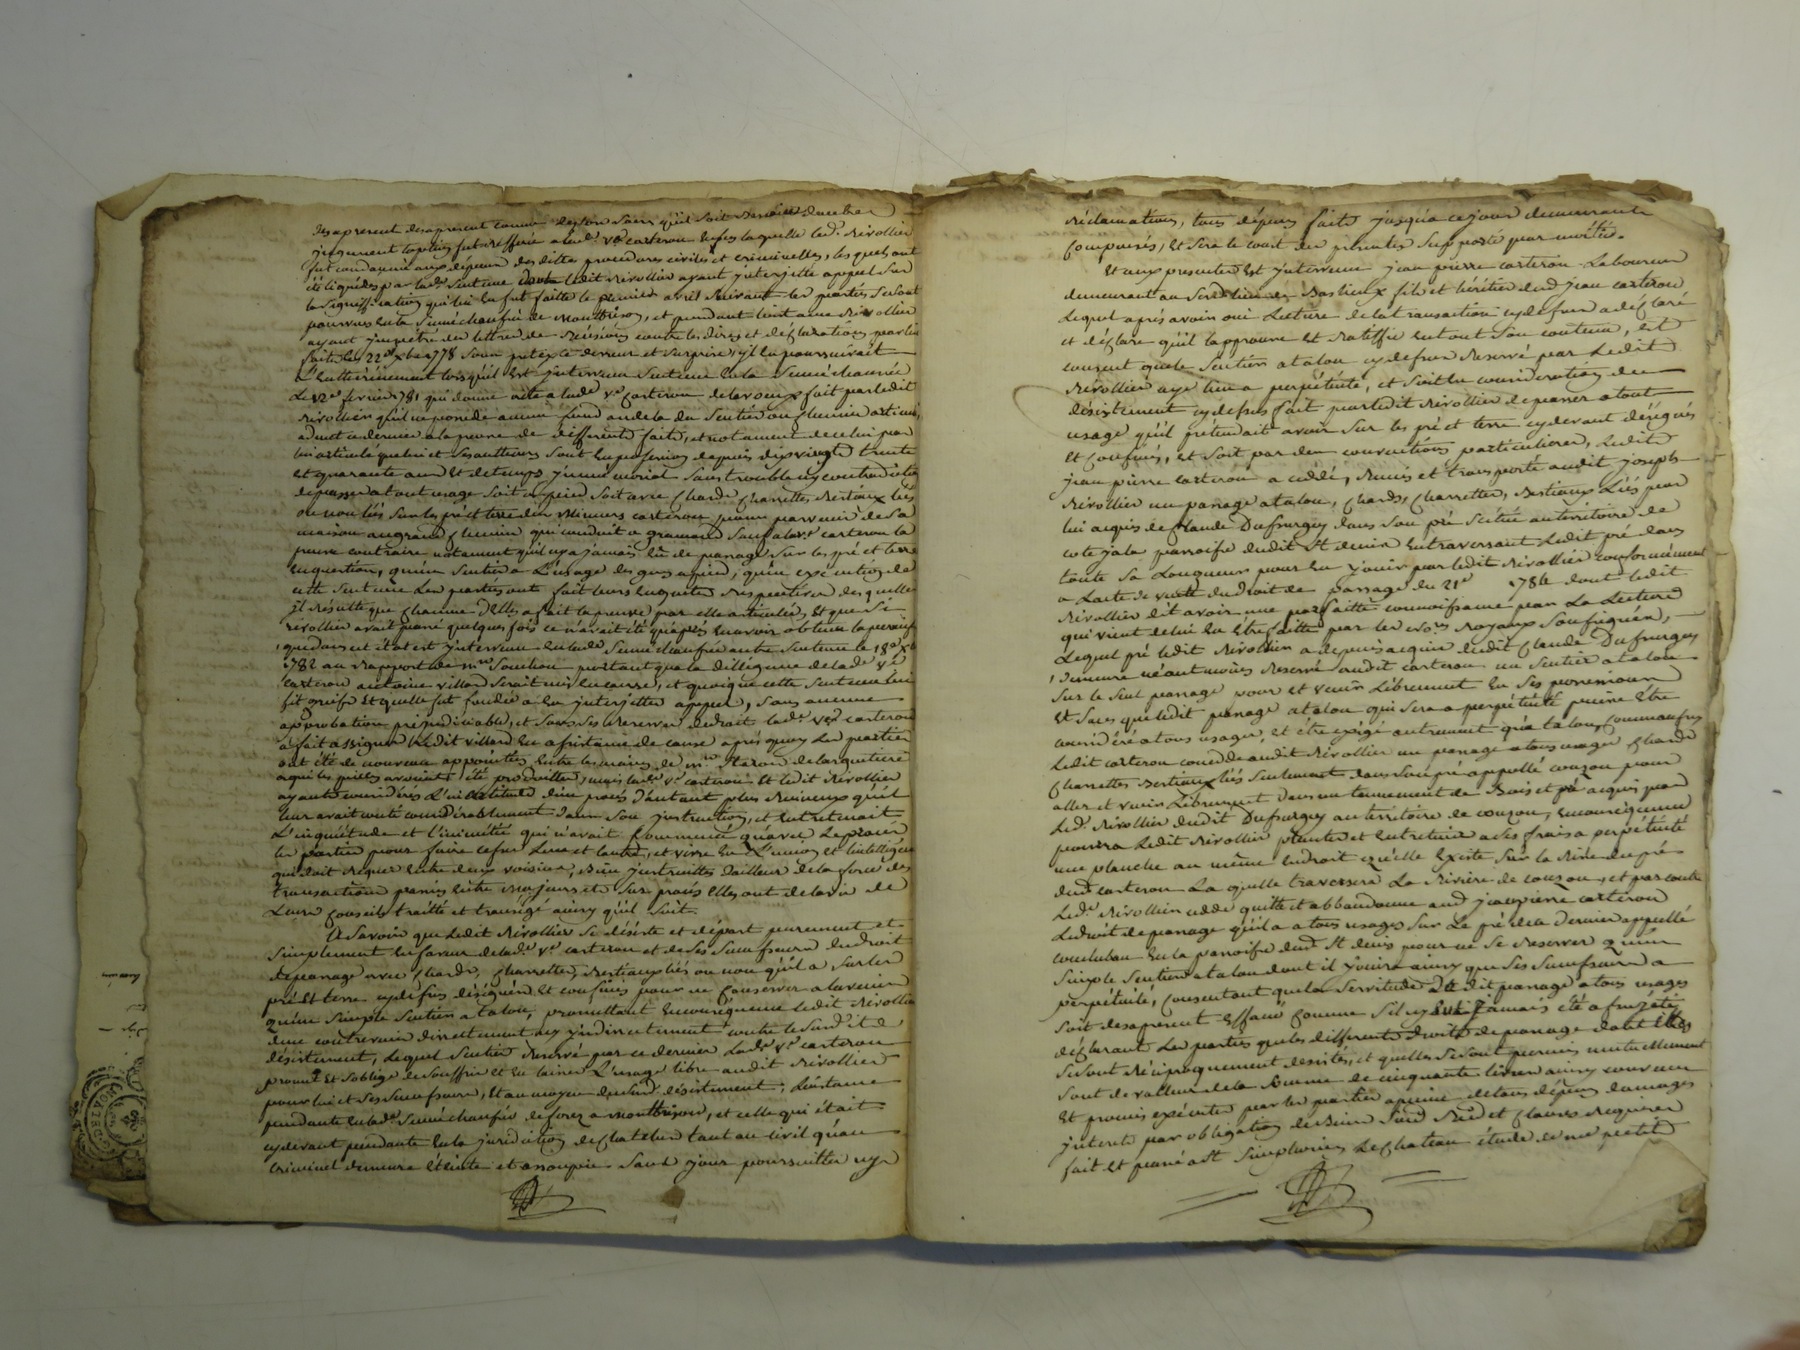 jugement lequel fut reffuré a lad.e v.e carteron et par laquelle led. Rivollier
fut condamné aux dépens des dittes procedures civiles et criminelles, lesquels ont
été liquidés par lad.e sentence dont ledit Rivollier ayant interjetté appel sur
la signiffication qui lui en fut faitte le premier avril suivant les parties se sont
pourvues en la Sénéchaussée de Montbrison, et pendant l'instance Rivollier
ayant impétré des lettres de Récision contre les dires et déclarations par lui
faits les 22 d'xbre 1778 sous pretexte d'erreur et surprise, il en poursuivait
L'enterinement lorsqu'il est intervenu sentence en la Sénéchaussée
Le 12e fevrier 1781 qui donne acte a lad.e v.e carteron de l'aveux fait par ledit
Rivollier qu'il ne possede aucun fond audela du Sentier ou chemin articulé
admet ce dernier a la preuve de differents faits, et notament de celui par
lui articulé que lui et ses autteurs sont en possession depuis dix vingt trente
et quarante ans et de temps immémorial sans trouble ny contradiction
de passer a tout usage soit a pied soit avec chards charrettes, Bestiaux liés
ou non liés sur les pré et terre des Mineurs carteron pour parvenir de sa
maison au grand chemin qui conduit a gramond sauf a la v.e carteron la
preuve contraire notament qu'il n'y a jamais eu de passage sur les pré et terre
en question, qu'un Sentier a L'usage des gens a pied, qu'en exécution de
cette Sentence les parties ont fait leurs enquetes respectives desquelles
il résulte que chacune d'elles a fait la preuve par elle articulée, et que si
rivollier avait passé quelques fois ce n'avait été qu'aprés en avoir obtenu la permission
que dans cet état est intervenu en lad.e Sénéchaussée autre Sentence le 18e xbre
1782 au rapport de m.re Souchon portant que a la dilligence de lad.e v.e
carteron antoine villard serait mis en cause, et quoique cette Sentence lui
fit grief et qu'elle fut fondée a en interjetter appel, sans aucune
approbation préjudiciable, et sous ses Reserves de droit lad.e v.e carteron
a fait assigner ledit villard en assistance de cause aprés quoy les parties
ont été de nouveau appointées entre les mains de m.re Staron de larguetiere
ayant considérés L'incertitude d'un procés d'autant plus Ruineux qu'il
leur avait couté considérablement dans son instruction, et entretenait
L'inquiétude et l'inimitié qui n'avait commencé qu'avec le procés
les parties pour faire cesser L'une et l'autre, et vivre en L'union et l'intelligence
qui doit regner entre deux voisins, Bien instruittes d'ailleurs de la force des
transactions permis entre Majeurs et sur procés elles ont de l'avis de
Leurs conseils traitté et transigé ainsy qu'il suit.
A Savoir que Ledit Rivollier se désiste et départ purement et
Simplement en faveur de lad.e v.e carteron et de ses Successeurs du droit
de passage avec chards, charrettes, Bestiaux liés ou non qu'il a sur les
pré et terre cydessus désignés et confinés pour ne conserver a l'avenir
qu'un simple Sentier a talon, promettant en conséquence ledit Rivollier
de ne contrevenir directement ny indirectement contre le Susd.it
désistement, Lequel Sentier reservé par ce dernier Lad.e v.e carteron
promet et s'oblige de souffrir et en laisser L'usage libre audit Rivollier
pour lui et ses Successeurs, et au moyen du susd. désistement, L'instance
pendante en lad.e Sénéchaussée de forez a montbrison, et celle qui était
cydevant pendante en la juridiction de chatelus tant au civil qu'au
criminel demeure éteinte et assoupie sans y pour poursuittes ny
Réclamations, tous dépens faits jusqu'a ce jour demeurants
compensés, et sera le cout des présentes supporté par moitié.
Et aux presentes est intervenu jean pierre carteron Laboureur
demeurant au Susd. lieu des Bastieux fils et héritier dud. jean carteron
Lequel aprés avoir oui Lecture de la transaction cydessus a déclaré
et déclare qu'il l'approuve et Ratiffie en tout son contenu, et
consent que le Sentier a talon cydessus Reservé par Ledit
Rivollier aye lieu a perpétuité, et soit en considération du
désistement cydessus fait par ledit Rivollier de passer a tout
usage qu'il prétendait avoir sur les pré et terre cydevant désignés
et confinés, et soit par des conventions particulieres, Ledit
jean pierre carteron a cédé, Remis et transporté audit joseph
Rivollier un passage a talon, chards, charrettes, Bestiaux Liés par
lui acquis de claude Dufourgey dans son pré scitué au territoire de
cote jala parroisse dudit St denis en traversant Ledit pré dans
toute sa Longueur pour en jouir par ledit Rivollier conformément
a L'acte de vente du droit de passage du 21e 1786 dont ledit
Rivollier dit avoir une parfaitte connoissance par La Lecture
qui vient de lui en être faitte par les no.res Royaux soussignés,
Lequel pré ledit Rivollier a depuis acquis dudit claude Dufourgey
demeure néantmoins Reservé audit carteron un Sentier a talon
sur le seul passage pour et venir Librement en ses possessions
et sans que ledit passage a talon qui sera a perpétuité puisse être
considéré a tous usages, et être exigé autrement qu'a talon, comme aussy
Ledit carteron concede audit Rivollier un passage a tous usages chards
charrettes Bestiaux liés seulement dans son pré appellé couzou pour
aller et venir Librement dans un tennement de Bois et pré acquis par
Led. Rivollier dudit Dufurgey au territoire de couzou, en conséquence
pourra Ledit Rivollier planter et entretenir a ses frais a perpétuité
une planche au même endroit qu'elle existe sur la Rive du pré
dud. carteron La quelle traversera La Riviere de couzou, et par contre
Led. Rivollier cedde quitte et abbandonne aud. jean pierre carteron
Ledroit de passage qu'il a a tous usages sur Le pré de ce dernier appellé
en la parroisse dud. St denis pour ne se Reserver qu'un
Simple Sentier a talon dont il jouira ainsy que ses Successeurs a
perpétuité, consentant que la servitude dudit passage a tous usages
soit des a present effacé comme s'il n'y avait jamais été assujéti
déclarant Les parties que les différents droits de passage dont elles
se sont Réciproquement désistés, et qu'elles se sont permis mutuellement
sont de valleur de la somme de cinquante livres ainsy convenu
Et promis exécuter par les parties a peine de tous dépens domages
interets par obligation de Biens Sous Red. et clauses Requises
fait et passé a St Simphorien Le chateau étude de me petit